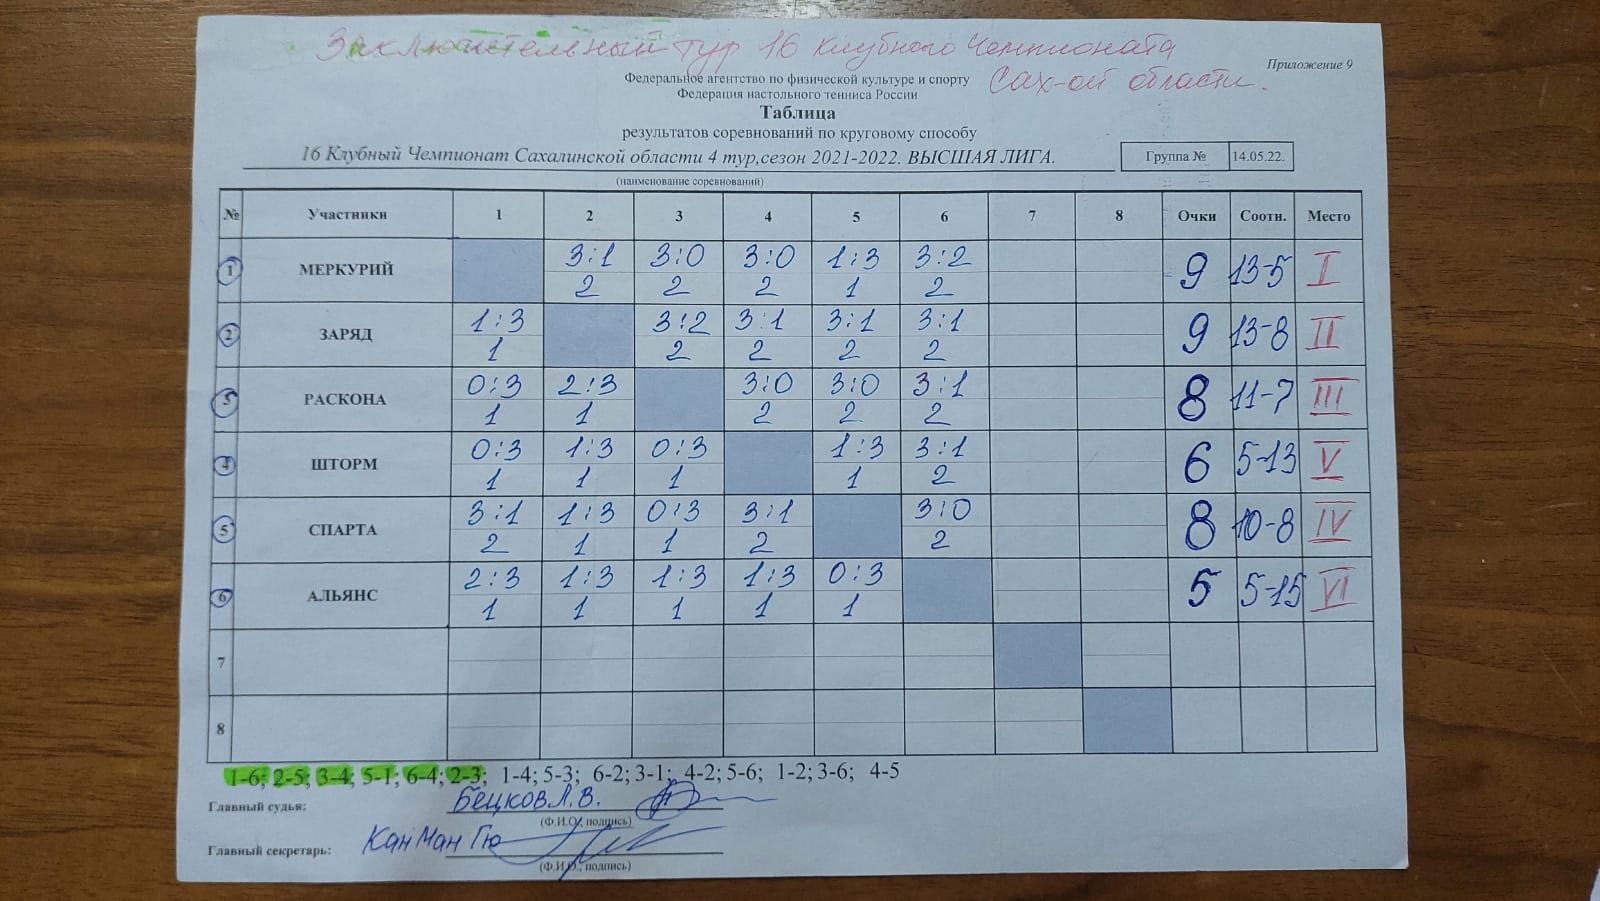 Заключительный тур 16 клубного Чемпионата
Сах-ой области.
Приложение 9
Федеральное агентство по физической культуре и спорту
Федерация настольного тенниса России
Таблица
результатов соревнований по круговому способу
16 Клубный Чемпионат Сахалинской области 4 тур,сезон 2021-2022. ВЫСШАЯ ЛИГА.
Группа № 14.05.22.
(наименование соревнований)
№ Участники 1 2 3 4 5 6 7 8 Очки Соотн. Место
1 МЕРКУРИЙ 3:1 3:0 3:0 1:3 3:2 9 13-5 I
2 2 2 1 2
2 ЗАРЯД 1:3 3:2 3:1 3:1 3:1 9 13-8 II
1 2 2 2 2
3 РАСКОНА 0:3 2:3 3:0 3:0 3:1 8 11-7 III
1 1 2 2 2
4 ШТОРМ 0:3 1:3 0:3 1:3 3:1 6 5-13 V
1 1 1 1 2
5 СПАРТА 3:1 1:3 0:3 3:1 3:0 8 10-8 IV
2 1 1 2 2
6 АЛЬЯНС 2:3 1:3 1:3 1:3 0:3 5 5-15 VI
1 1 1 1 1
7
8
1-6; 2-5; 3-4; 5-1; 6-4; 2-3; 1-4; 5-3; 6-2; 3-1; 4-2; 5-6; 1-2; 3-6; 4-5
Главный судья: Бецков Л.В.
(Ф.И.О, подпись)
Главный секретарь: Кан Ман Гю
(Ф.И.О., подпись)